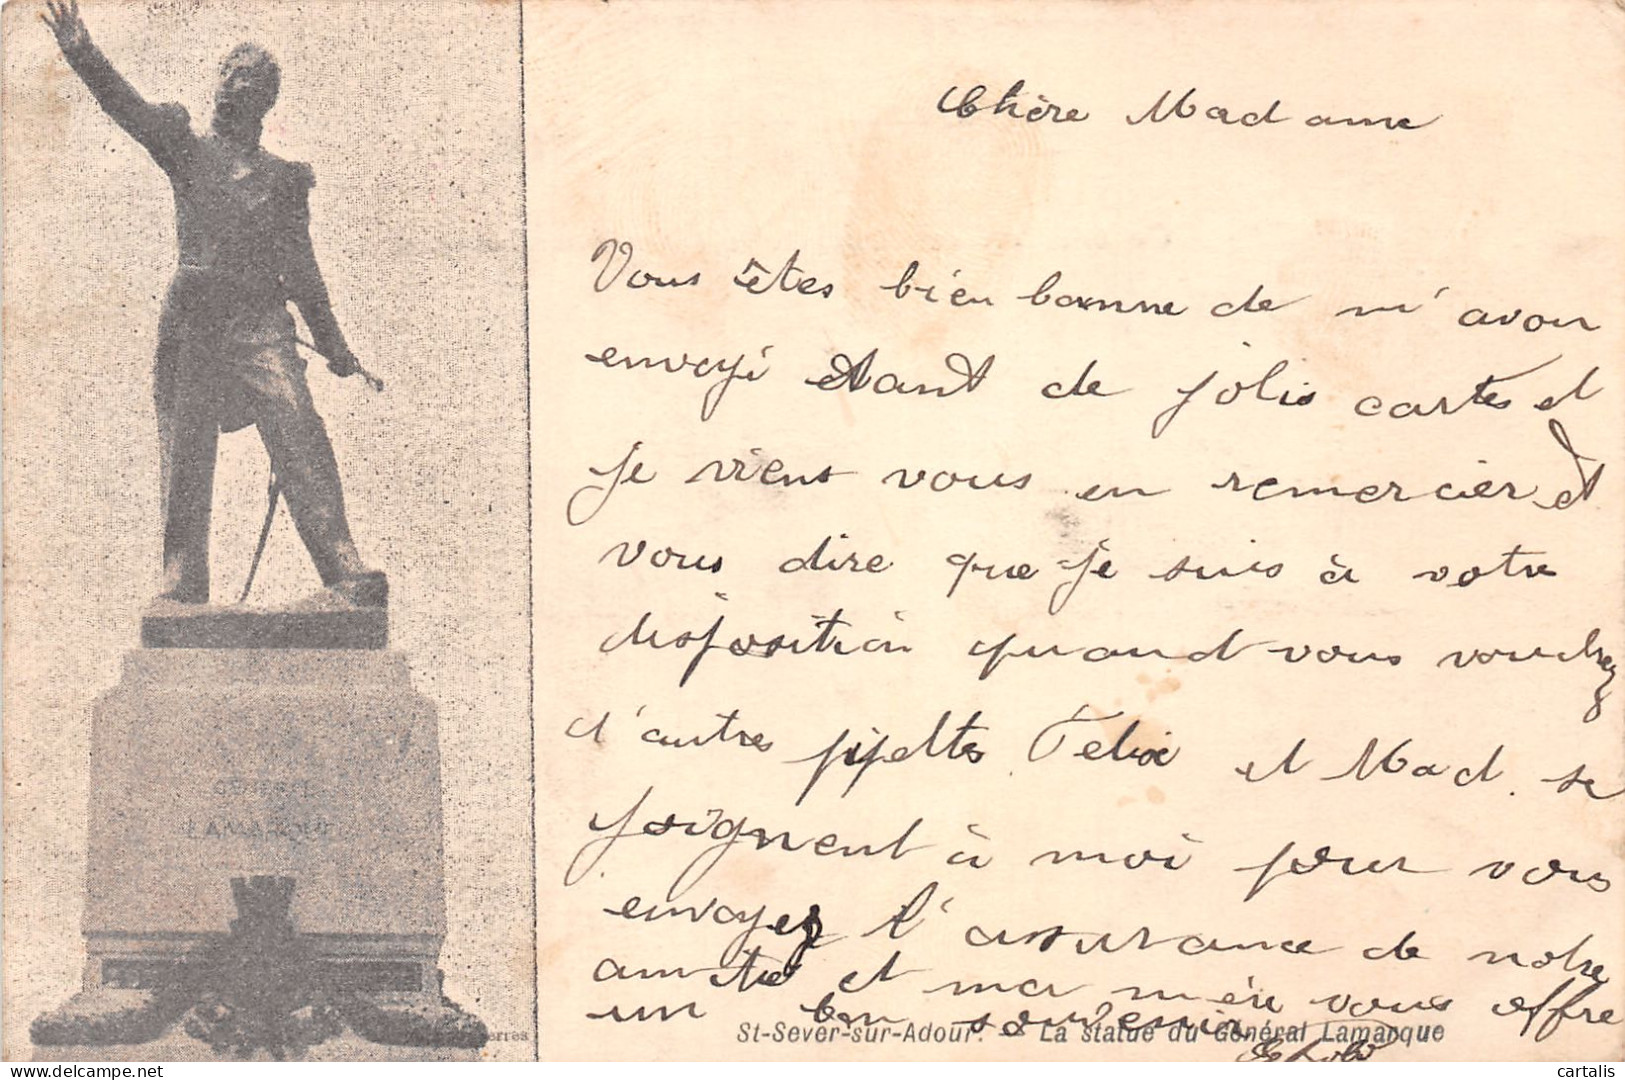 Chère Madame
Vous êtes bien bonne de m'avoir
envoyé tant de jolis cartes et
je viens vous en remercier et
vous dire que je suis à votre
disposition quand vous voudrez
d'autres pipelts. Felix et Mad. se
joignent à moi pour vous
envoyez l'assurance de notre
amitié et ma mère vous offre
un bon souvenir
GÉNÉRAL
LAMARQUE
St-Sever-sur-Adour. - La statue du Général Lamarque
cartalis